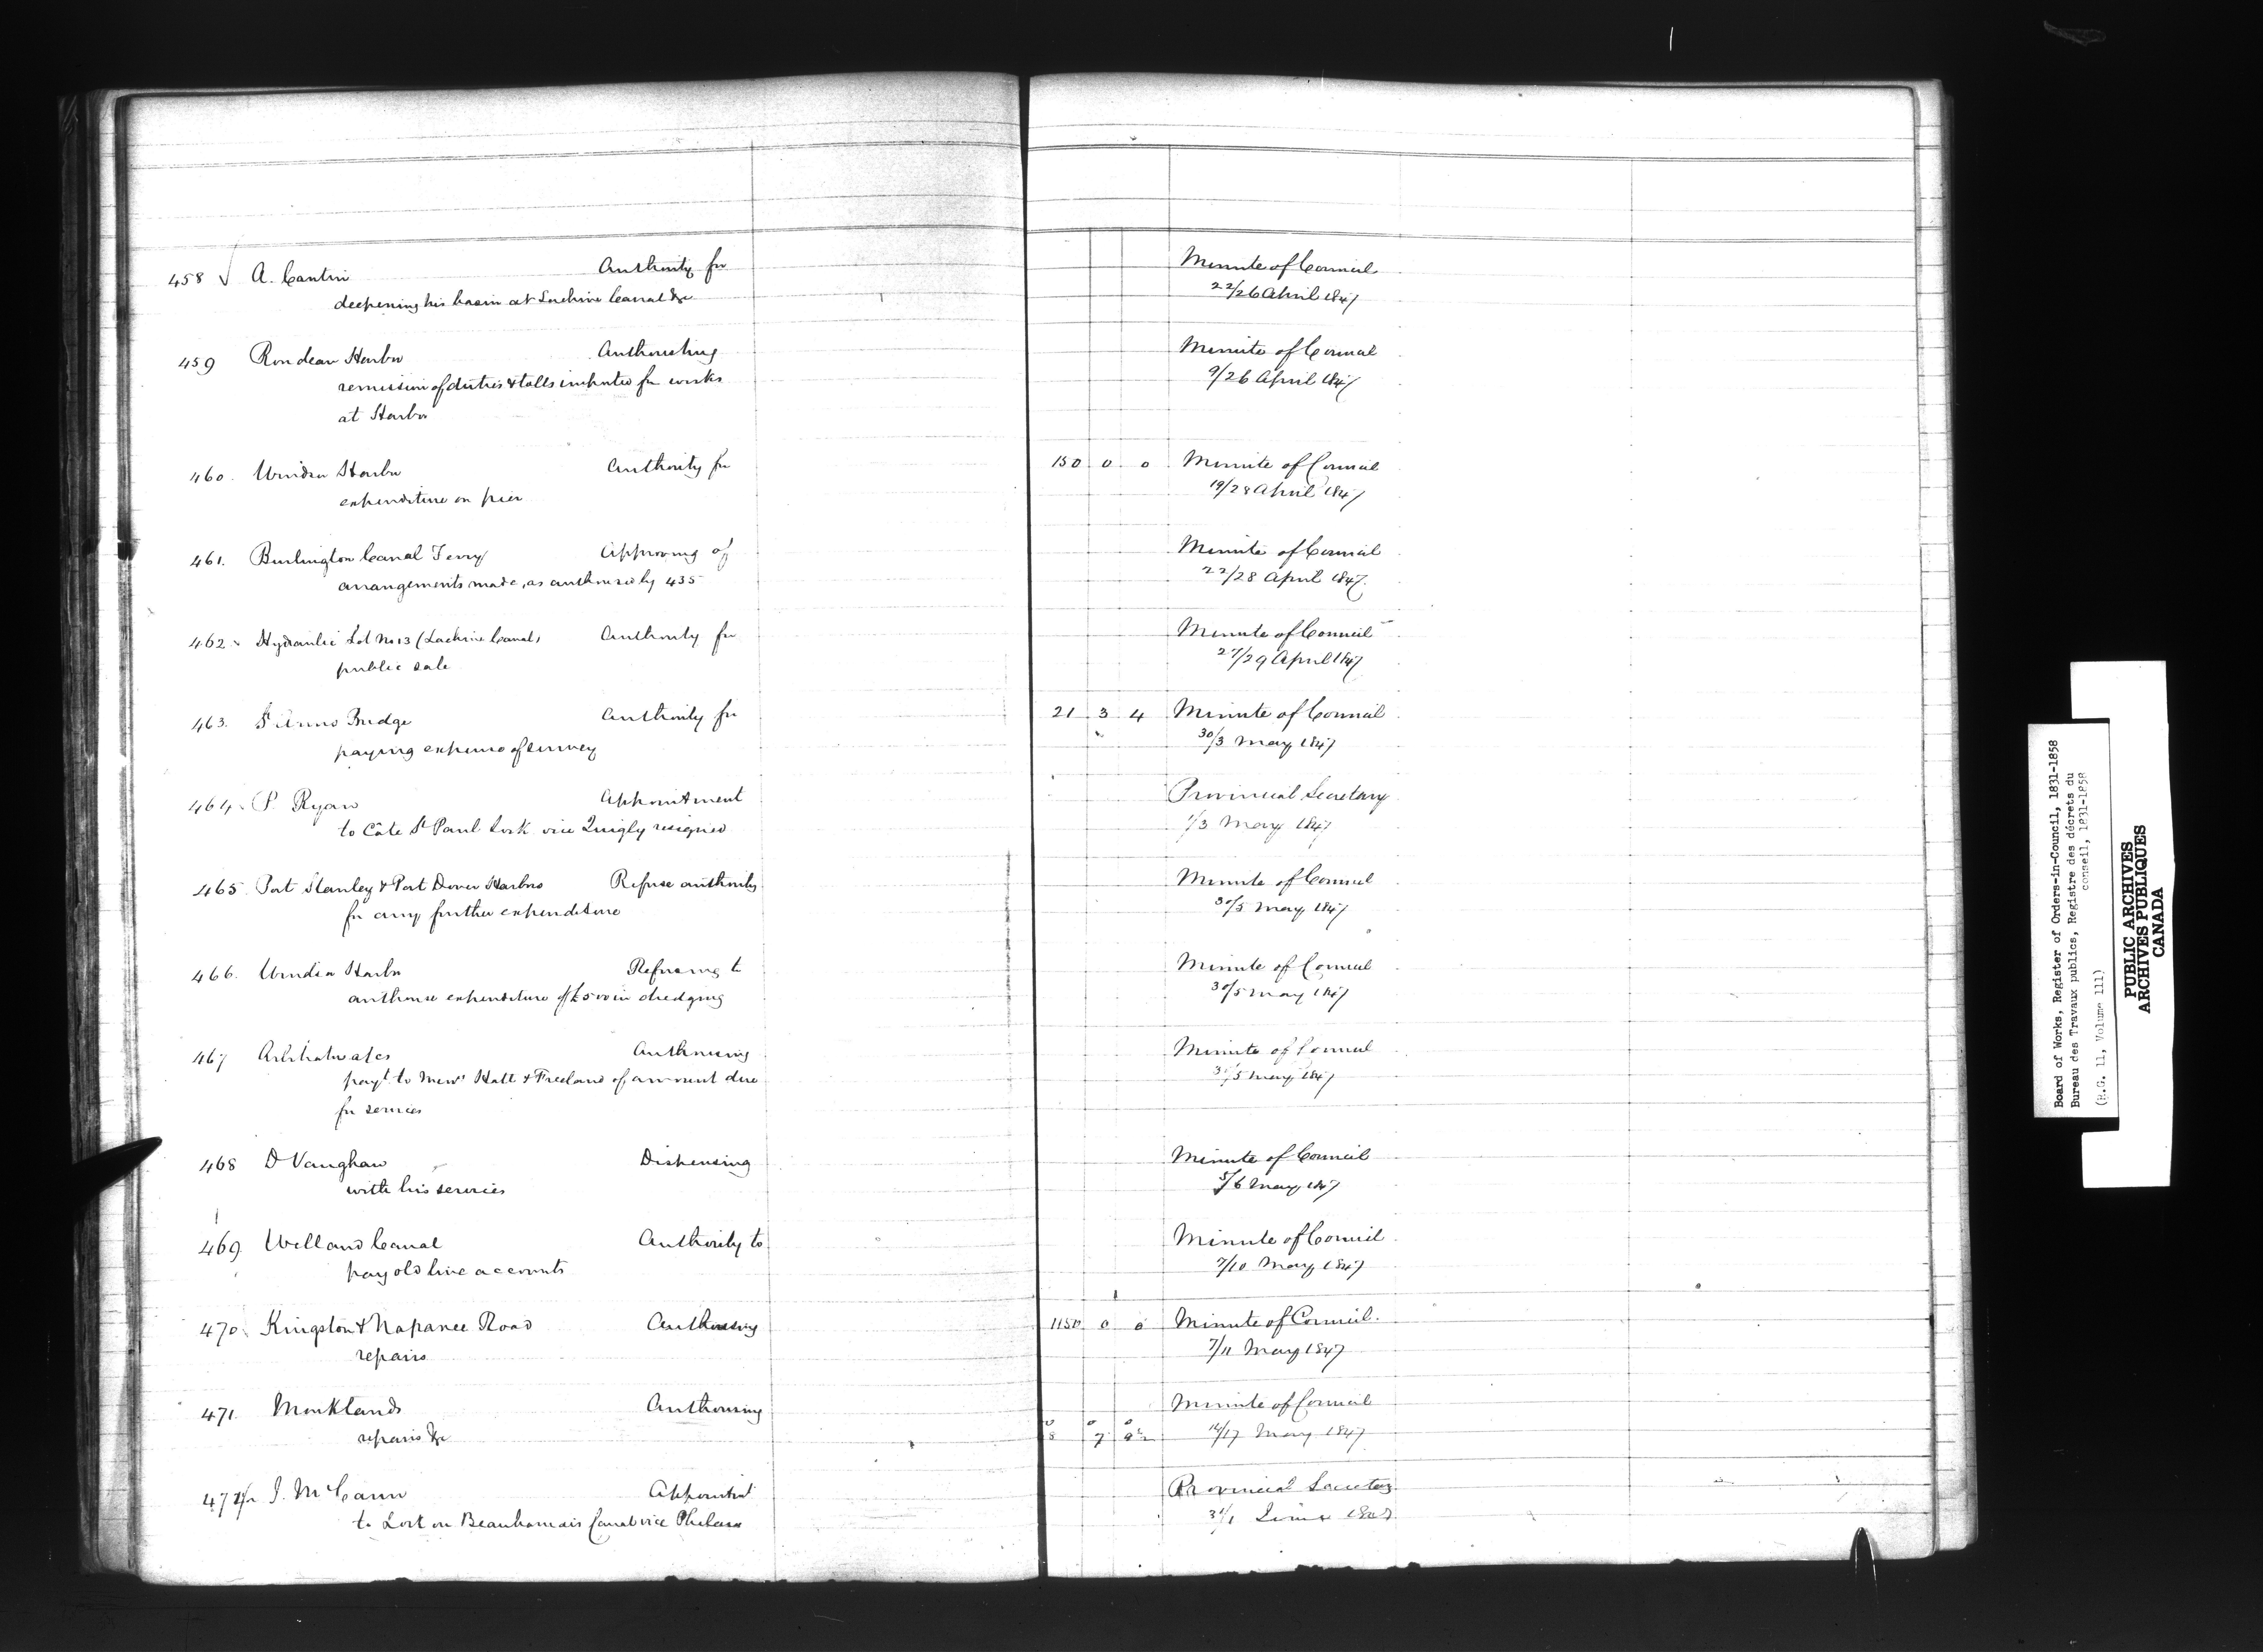 458 √ A. Cantin Authority for Minute of Council
deepening his basin at Lachine Canal &c 22/26 April 1847
459 Rondeau Harbor Authorising Minute of Council
remission of duties & tolls imputed for works 9/26 April 1847
at Harbor
460. Windsor Harbor Authority for 150 0 0 Minute of Council
expenditure on pier 19/28 April 1847
461. Burlington Canal Ferry Approving of Minute of Council
arrangements made, as authorised by 435 22/28 April 1847.
462 Hydraulic Lot No 13 (Lachine Canal) Authority for Minute of Council
public sale 27/29 April 1847
463. St Anns Bridge Authority for 21 3 4 Minute of Council
paying expense of survey 30/3 May 1847
464 P Ryan Appointment Provincial Secretary
to Côte St Paul Lock vice Quigly resigned 1/3 May 1847
465 Port Stanley & Port Dover Harbors Refuse authority Minute of Council
for any further expenditure 30/5 May 1847
466. Windsor Harbor Refusing to Minute of Council
authorise expenditure of £500 in dredging 30/5 May 1847
467 Arbitrators Authorising Minute of Council
payt to Messrs Hall & Freeland of amount due /5 May 1847
for services
468 D Vaughan Dispensing Minute of Council
with his services 5/6 May 1847
469. Welland Canal Authority to Minute of Council
pay old line accounts 7/10 May 1847
470. Kingston & Napanee Road Authorising 1150 0 0 Minute of Council.
repairs 7/11 May 1847
471. Monklands Authorising Minute of Council
repairs &c 14/17 May 1847
472 J. McCann Appointmt Provincial Secretary
to Lock on Beauharnois Canal vice Phelan 31/1 June 1847
Board of Works, Register of Orders-in-Council, 1831-1858
Bureau des Travaux publics, Registre des décrets du
conseil, 1831-1858
(R.G. 11, Volume 111)
PUBLIC ARCHIVES
ARCHIVES PUBLIQUES
CANADA